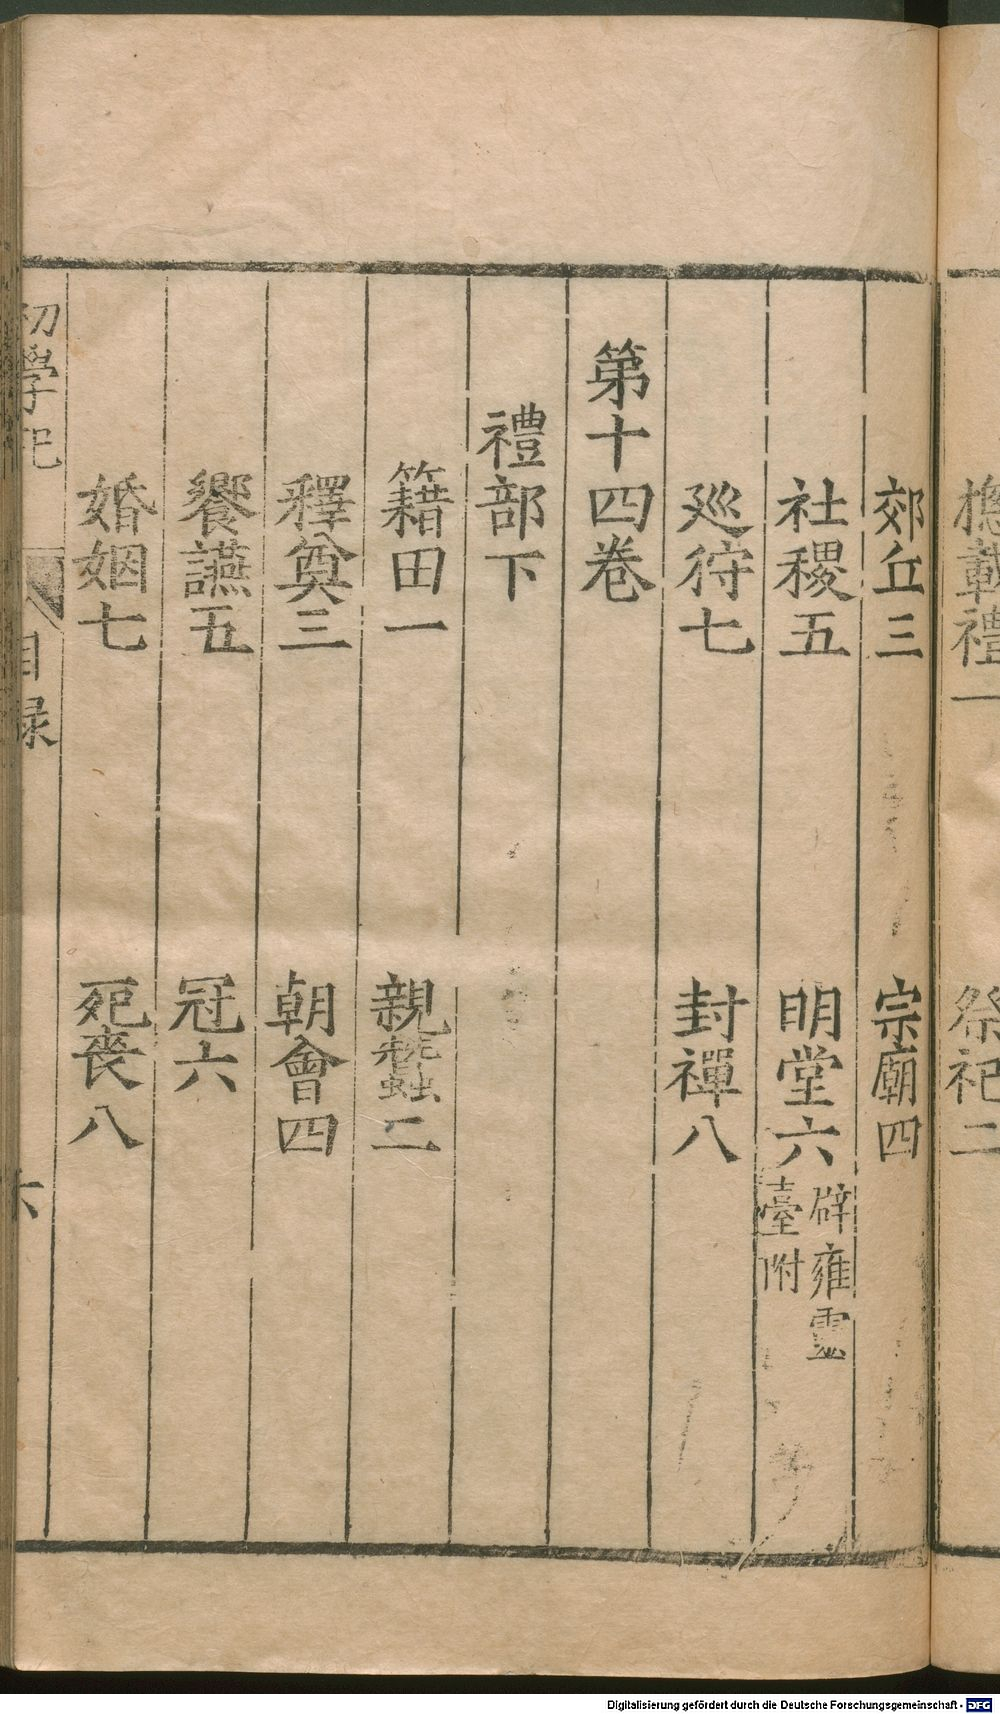 揔載禮一 祭祀二
郊丘三 宗廟四
社稷五 明堂六 辟雍靈臺附
廵狩七 封禪八
第十四卷
禮部下
籍田一 親蠶二
釋奠三 朝會四
饗讌五 冠六
婚姻七 死喪八
初學記 目録 六
Digitalisierung gefördert durch die Deutsche Forschungsgemeinschaft - DFG